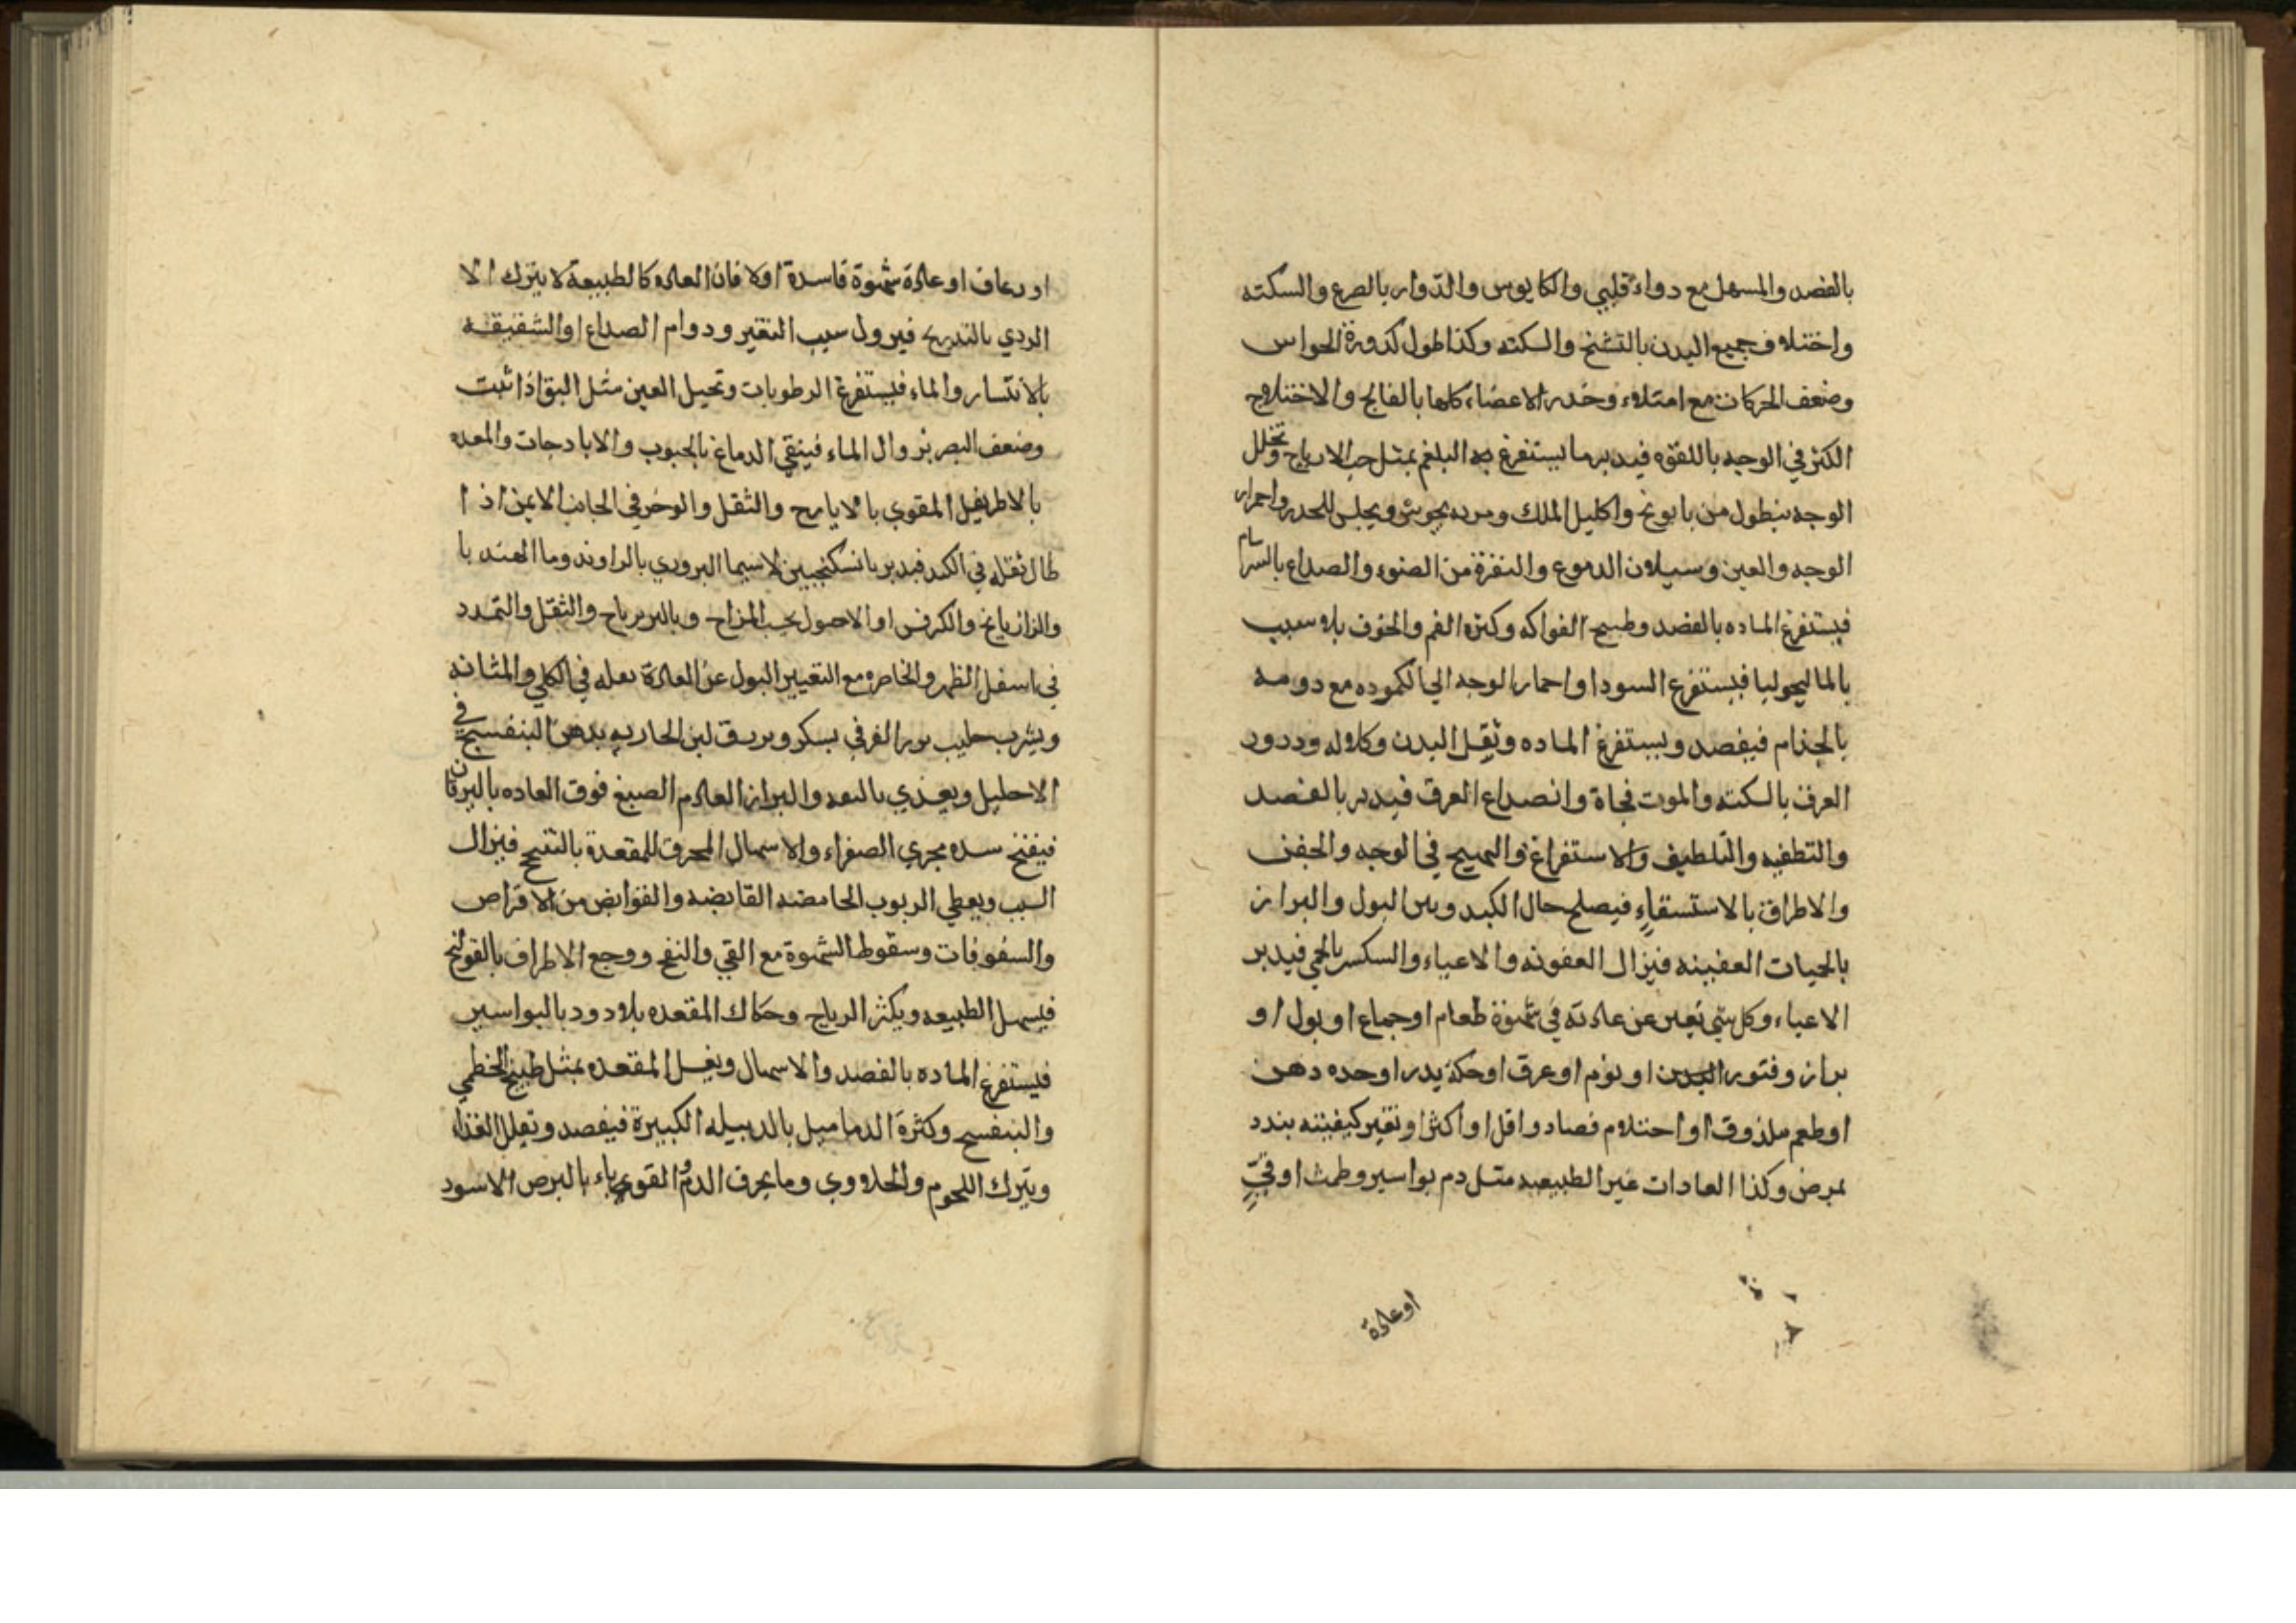 بالفصد والمسهل مع دواء قلبي والكابوس والدوار بالصرع والسكته
واختلاف جميع البدن بالتشنج والسكته وكذا طول كدورة الحواس
وضعف الحركات مع امتلاء وخدر الاعضاء كلها بالفالج والاختلاج
الكثر في الوجه باللقوه فيدبر بما يستفرغ به البلغم بمثل حب الايارج وتحلل
الوجه بنطول من بابونج واكليل الملك واحمرار
الوجه والعين وسيلان الدموع والنفرة من الضوء والصداع بالسرسام
فيستفرغ الماده بالفصد وطبيخ الفواكه وكثره الغم والخوف بلا سبب
بالماليخوليا فيستفرغ السودا واحمار الوجه الي الكموده مع دومه
بالجذام فيفصد ويستفرغ الماده وثقل البدن وكلاله ودرور
العرق بالسكته والموت فجاة وانصداع العرق فيدبر بالفصد
والتطفيه والتلطيف والاستفراغ والتهييج في الوجه والجفن
والاطراف بالاستسقاء فيصلح حال الكبد وبين البول والبراز
بالحميات العفينه فيزال العفونه والاعياء والتكسر بالحمي فيدبر
الاعياء وكل شي تغير عن عادته في شهوة طعام او جماع او بول او
براز وفتور البدن او نوم او عرق او حكة بدر او حده دهن
او طعم ملذوق او احتلام فصاد واقل او اكثر او تغير كيفيته بندد
بمرض وكذا العادات غير الطبيعيه مثل دم بواسير وطمث او قيء
او عادة
او رعاف او عادة شهوة فاسدة اولا فان العاده كالطبيعة لا يترك الا
الردي بالتدريج فيرول سبب التغير ودوام الصداع او الشقيقه
بالانتسار والماء فيستفرغ الرطوبات وتحيل العين مثل البق اذا ثبت
وضعف البصر بنزوال الماء فينقي الدماغ بالحبوب والايارجات والمعده
بالاطريفل المقوي بالايارج والثقل والوخز في الجانب الايمن اذا
طال ثقله في الكبد فيدبر بالسكنجبين لاسيما البزوري بالراوند وما الهندبا
والرازيانج والكرفس او الاصول بحسب المزاج والثقل والتمدد
في اسفل الظهر والخاصره مع التغيير البول عن العادة بعله في الكلي والمثانه
ويشرب حليب بسكر لبن بدهن البنفسج في
الاحليل ويغذي والبراز العادم الصبغ فوق العاده باليرقان
فيفتح سده مجري الصفراء والاسهال المحرق للمقعدة بالتقيح فيزال
السبب ويعطي الربوب الحامضه القابضه والقوابض من الاقراص
والسفوفات وسقوط الشهوة مع القي والنفخ ووجع الاطراف بالقولنج
فيسهل الطبيعه ويكثر الرياح وحكاك المقعده بلا دود بالبواسير
فيستفرغ الماده بالفصد والاسهال ويغسل المقعده بمثل طبيخ الخطمي
والبنفسج وكثرة الدماميل بالدبيله الكبيرة فيفصد وتقلل الغذاء
ويترك اللحوم والحلاووي وما يحرق الدم والقوباء بالبرص الاسود